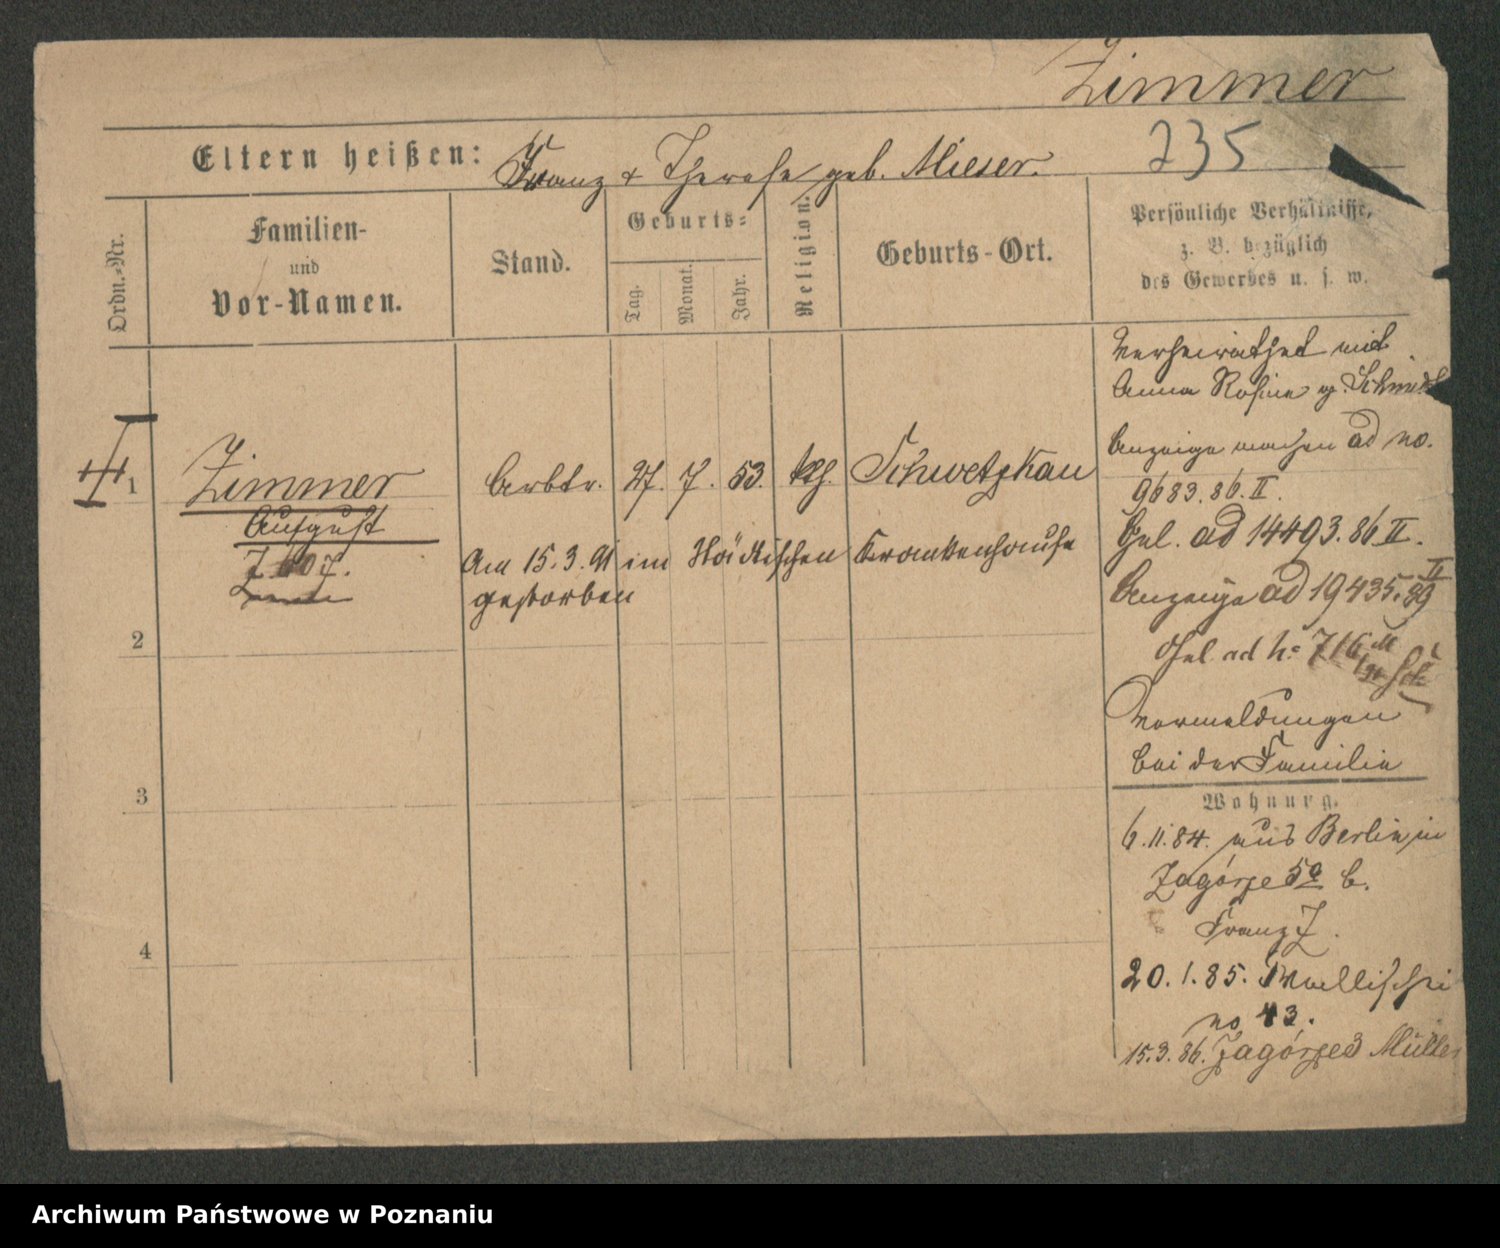 Zimmer
235
Eltern heißen: Franz & Therese geb. Mieser.
Ordn.-Nr.
Familien-
und
Vor-Namen.
Stand.
Geburts-
Tag.
Monat.
Jahr.
Religion.
Geburts-Ort.
Persönliche Verhältnisse,
z. B. bezüglich
des Gewerbes u. s. w.
1
Zimmer
August
Arbtr. 27. 7. 53. kth. Schwetzkau
Am 15.3.91 im städtischen Krankenhause
gestorben
2
3
4
Verheirathet mit
Anna Rosine g. Schmidt
Anzeige machen ad no.
9683.86.II.
Gel. ad 14493.86 II.
Anzeige ad 19435.89 II
Gel. ad No 716
Vormeldungen
bei der Familie
Wohnung.
6.11.84. aus Berlin in
Zagórze 5a b.
Franz Z.
20.1.85. Wallischei
no 43.
15.3.86. Zagórze 3 Müller
Archiwum Państwowe w Poznaniu